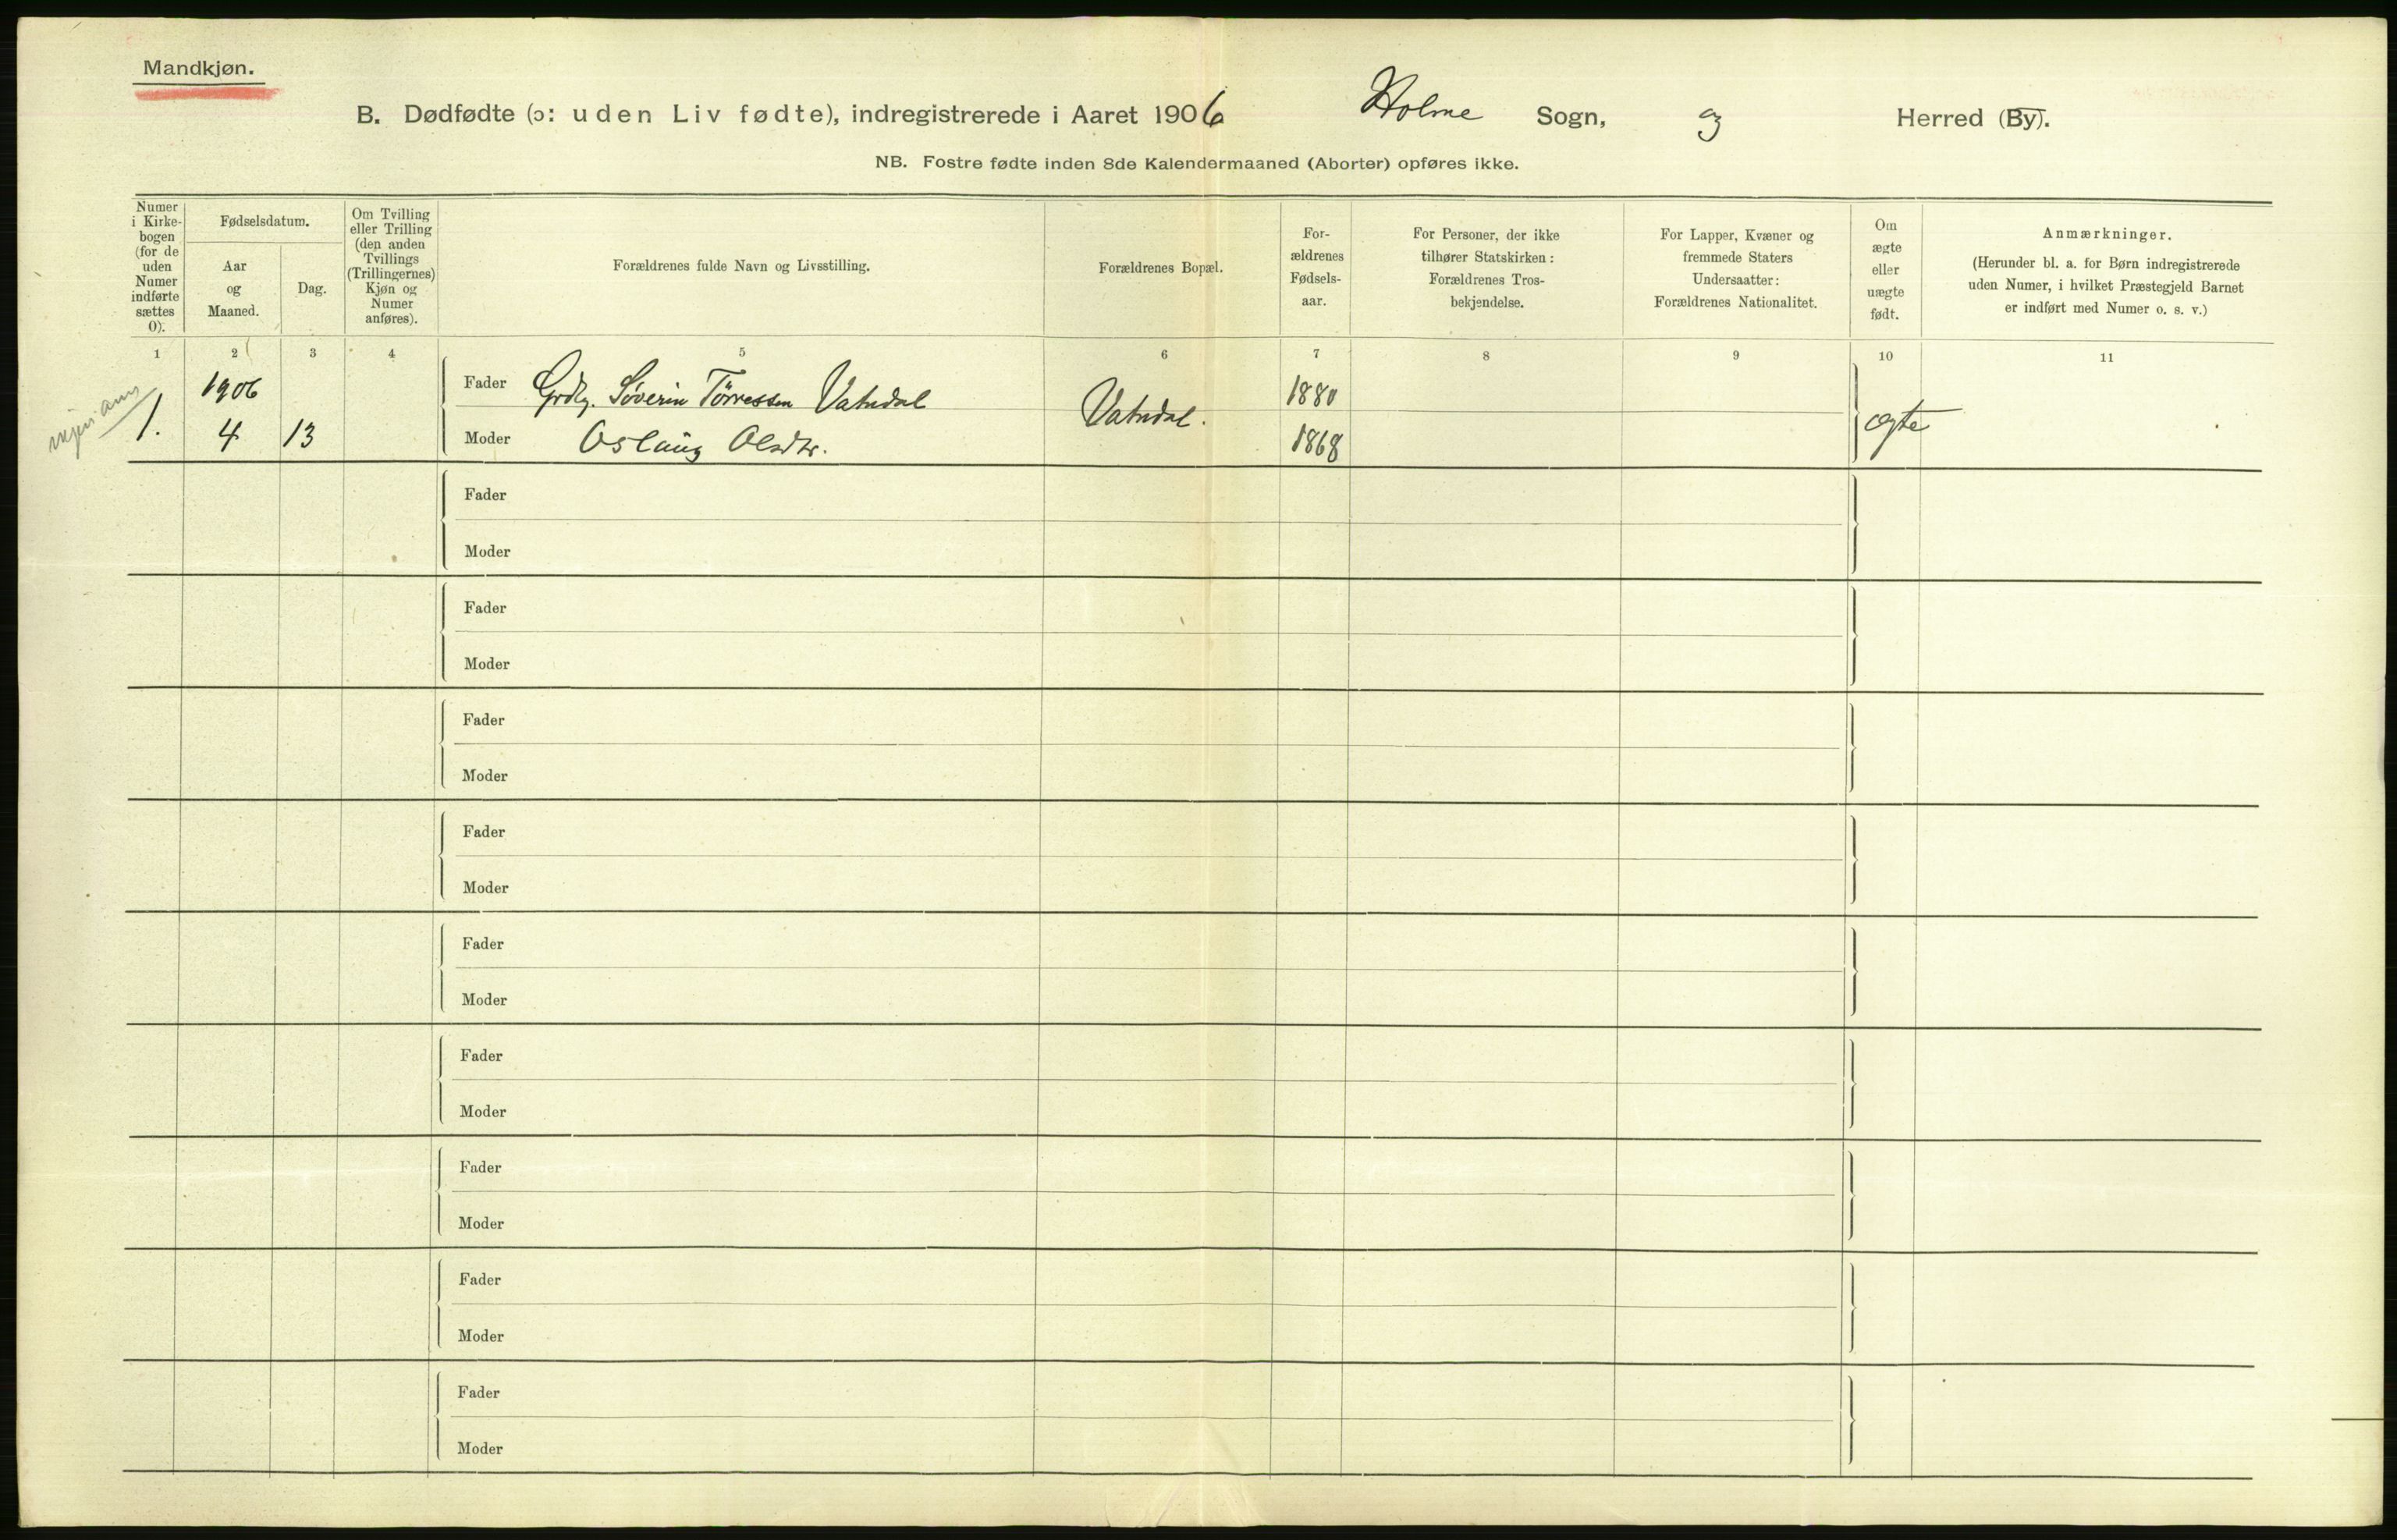 Mandkjøn.
B. Dødfødte (ɔ: uden Liv fødte), indregistrerede i Aaret 1906 Holme Sogn, og Herred (By).
NB. Fostre fødte inden 8de Kalendermaaned (Aborter) opføres ikke.
Numer
i Kirke-
bogen
(for de
uden
Numer
indførte
sættes
0).
Fødselsdatum.
Aar
og
Maaned.
Dag.
Om Tvilling
eller Trilling
(den anden
Tvillings
(Trillingernes)
Kjøn og
Numer
anføres).
Forældrenes fulde Navn og Livsstilling.
Forældrenes Bopæl.
For-
ældrenes
Fødsels-
aar.
For Personer, der ikke
tilhører Statskirken:
Forældrenes Tros-
bekjendelse.
For Lapper, Kvæner og
fremmede Staters
Undersaatter:
Forældrenes Nationalitet.
Om
ægte
eller
uægte
født.
Anmærkninger.
(Herunder bl. a. for Børn indregistrerede
uden Numer, i hvilket Præstegjeld Barnet
er indført med Numer o. s. v.)
1 2 3 4 5 6 7 8 9 10 11
1906 Fader Grdbr. Søverin Tørressen Vatndal 1880
1. 4 13 Vatndal. ægte
Moder Oslaug Olsdtr. 1868
Fader
Moder
Fader
Moder
Fader
Moder
Fader
Moder
Fader
Moder
Fader
Moder
Fader
Moder
Fader
Moder
Fader
Moder